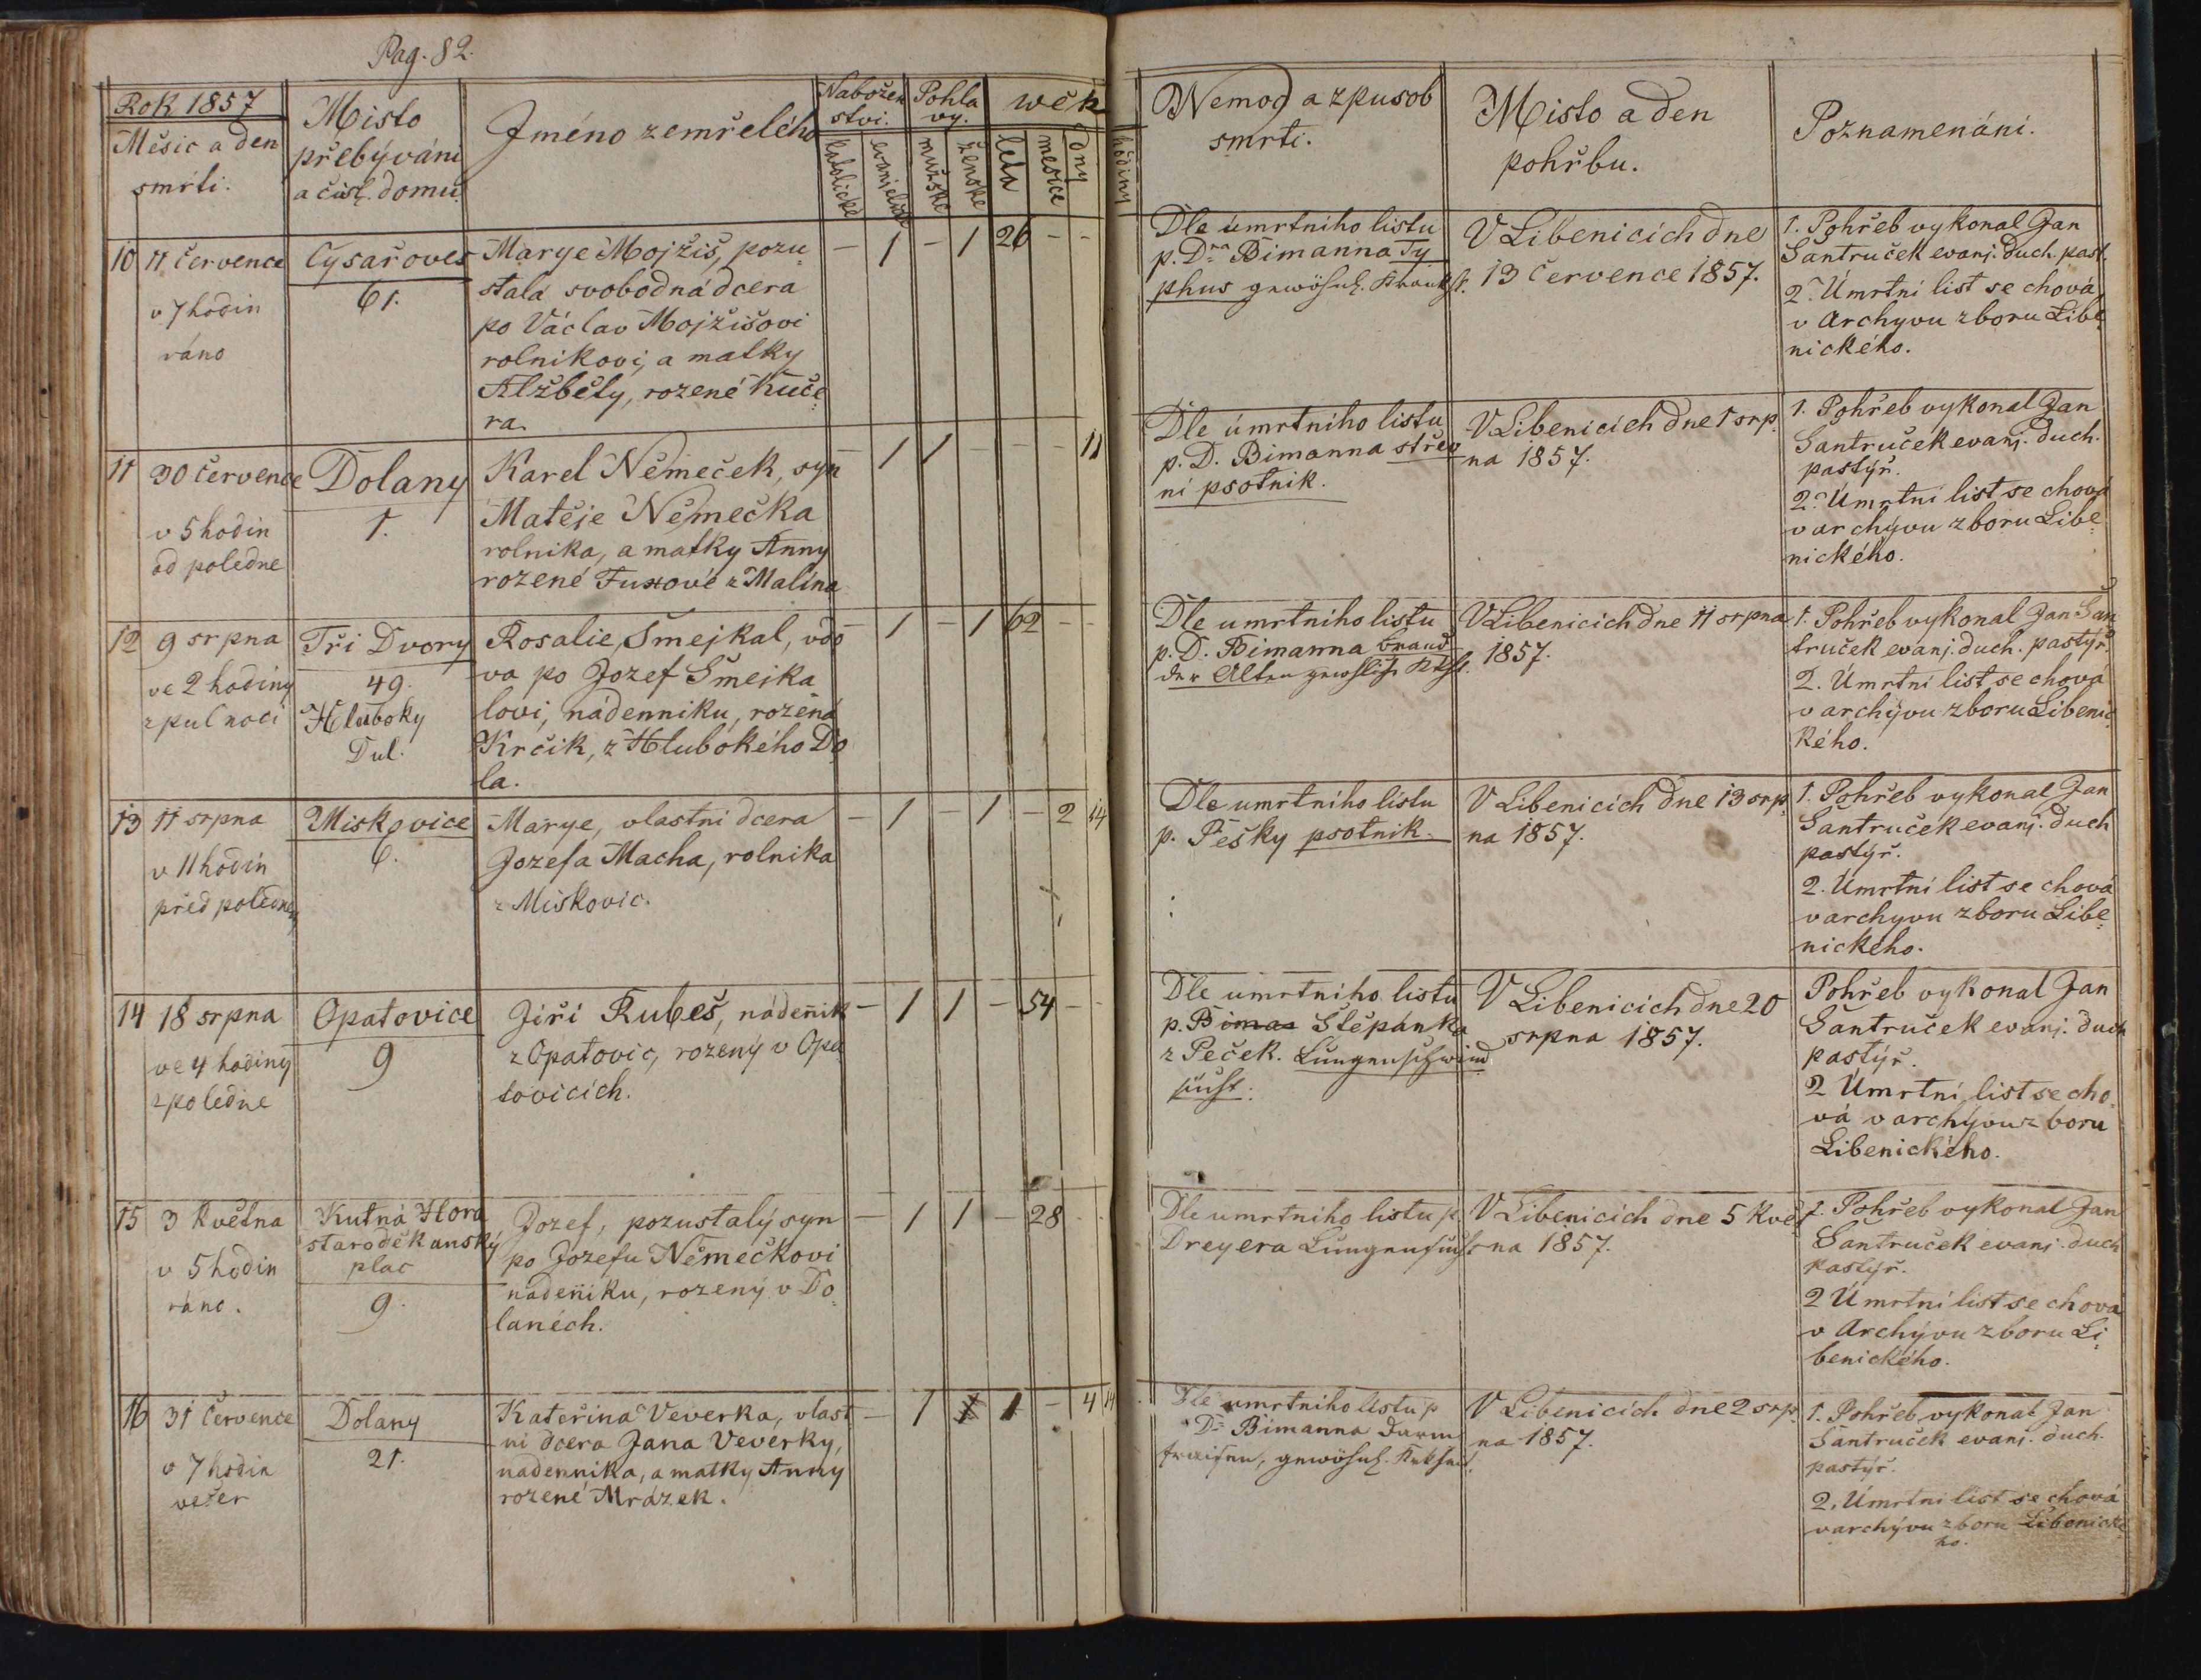 Pag. 82.
Rok 1857
Měsic a den
smrti.
Misto
přebýváni
a čisl. domu.
Jméno zemřelého
Nabožen
stvi.
katolické
evanjelické
Pohla
vy.
mužské
ženské
wěk
léta
mesíce
dny
hodiny
Nemoc a zpusob
smrti.
Misto a den
pohřbu.
Poznamenáni.
10 11 července
v 7 hodin
ráno
Cysařoves
61.
Marye Mojžiš, pozu=
stalá svobodná dcera
po Václav Mojžišovi
rolnikovi, a matky
Alžběty, rozené Kuče=
ra.
— 1 — 1 26 — —
Dle úmrtniho listu
p. Dra Bimanna Ty
phus gewöhnl. Krankh.
V Libenicich dne
13 července 1857.
1. Pohřeb vykonal Jan
Šantruček evanj. duch. past.
2. Úmrtni list se chová
v Archyvu zboru Libe=
nického.
11 30 července
v 5 hodin
od poledne
Dolany
1.
Karel Němeček, syn
Matěje Němečka
rolnika, a matky Anny
rozené Fuxové z Malína
— 1 1 — — — 11
Dle úmrtniho listu
p. D. Bimanna střev
ni psotnik.
V Libenicich dne 1 srp=
na 1857.
1. Pohřeb vykonal Jan
Šantruček evanj. duch.
pastýř.
2. Úmrtni list se chová
v archývu zboru Libe=
nického.
12 9 srpna
ve 2 hodiny
z pul noci
Tři Dvory
49.
Hluboky
Dul.
Rosalie, Šmejkal, vdo=
va po Jozef Šmejka=
lovi, nádenniku, rozená
Krčik, z Hlubokého Do
la.
— 1 — 1 62 — —
Dle umrtniho listu
p. D. Bimanna brand
der Alten gewöhl. Kkh.
V Libenicich dne 11 srpna
1857.
1. Pohřeb vykonal Jan Šan
truček evanj. duch. pastýř.
2. Úmrtni list se chova
v archývu zboru Libenic=
kého.
13 11 srpna
v 11 hodin
před polednem
Miskovice
6.
Marye, vlastni dcera
Jozefa Macha, rolnika
z Miskovic.
— 1 — 1 — 2 14
Dle umrtniho listu
p. Pešky psotnik.
V Libenicich dne 13 srp=
na 1857.
1. Pohřeb vykonal Jan
Šantruček evanj. duch
pastýř.
2. Úmrtni list se chová
v archyvu zboru Libe=
nického.
14 18 srpna
ve 4 hodiny
z poledne
Opatovice
9
Jiří Rubeš, nádenik
z Opatovic, rozený v Opa
tovicích.
— 1 1 — 54 — —
Dle umrtniho listu
p. Biman Štěpánka
z Peček. Lungenschwind
sucht.
V Libenicich dne 20
srpna 1857.
Pohřeb vykonal Jan
Šantruček evanj. duch
pastýř.
2 Úmrtni list se cho=
vá v archývu z boru
Libenického.
15 3 Května
v 5 hodin
ráno.
Kutná Hora
staroděkanský
plac
9.
Jozef, pozustalý syn
po Jozefu Němečkovi
nádeniku, rozený v Do=
lanéch.
— 1 1 — 28 — —
Dle umrtniho listu p.
Dreyera Lungensucht
V Libenicich dne 5 Kvě
na 1857.
1. Pohřeb vykonal Jan
Šantruček evanj. duch
pastýř.
2 Úmrtni list se chova
v Archývu zboru Li=
benického.
16 31 Července
v 7 hodin
večer
Dolany
21.
Kateřina Veverka, vlast
ni dcera Jana Veverky,
nadennika, a matky Anny
rozené Mrázek.
— 1 1 1 — 4 14
Dle umrtniho listu p
Dr Bimanna Darm
fraisen, gewöhnl. Kkht.
V Libenicich dne 2 srp=
na 1857.
1. Pohřeb vykonal Jan
Šantruček evanj. duch.
pastýř.
2. Úmrtni list se chová
v archývu zboru Libenické
ho.